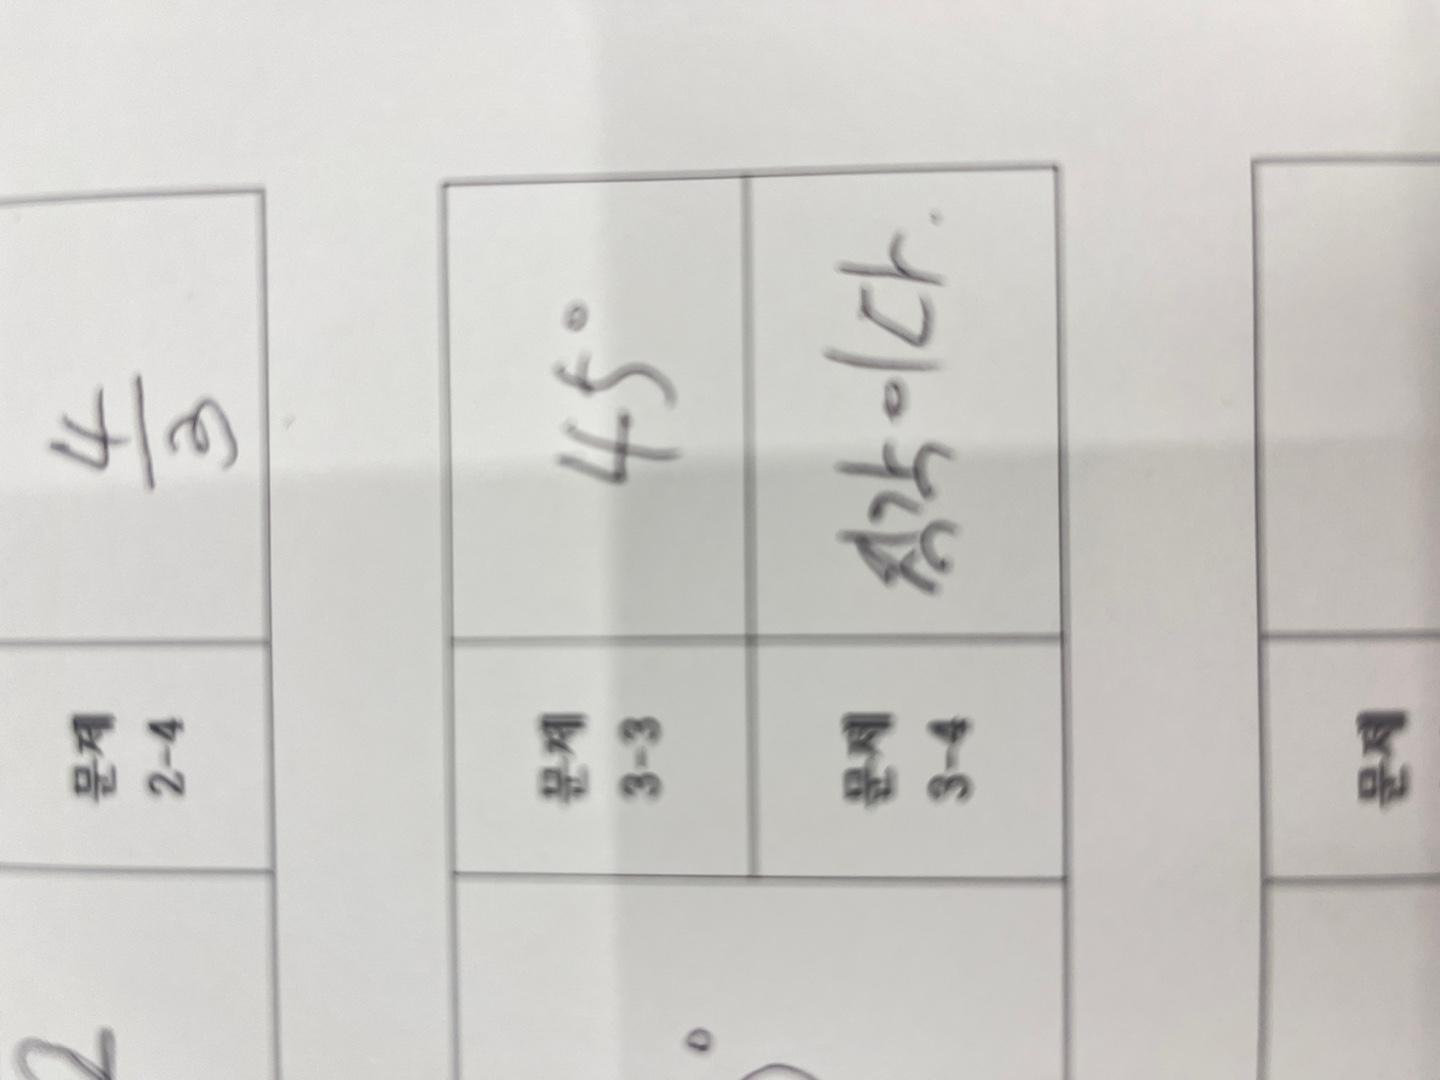 문제
2-4
4/3
문제
3-3
45°
문제
3-4
생각이다.
문제
2